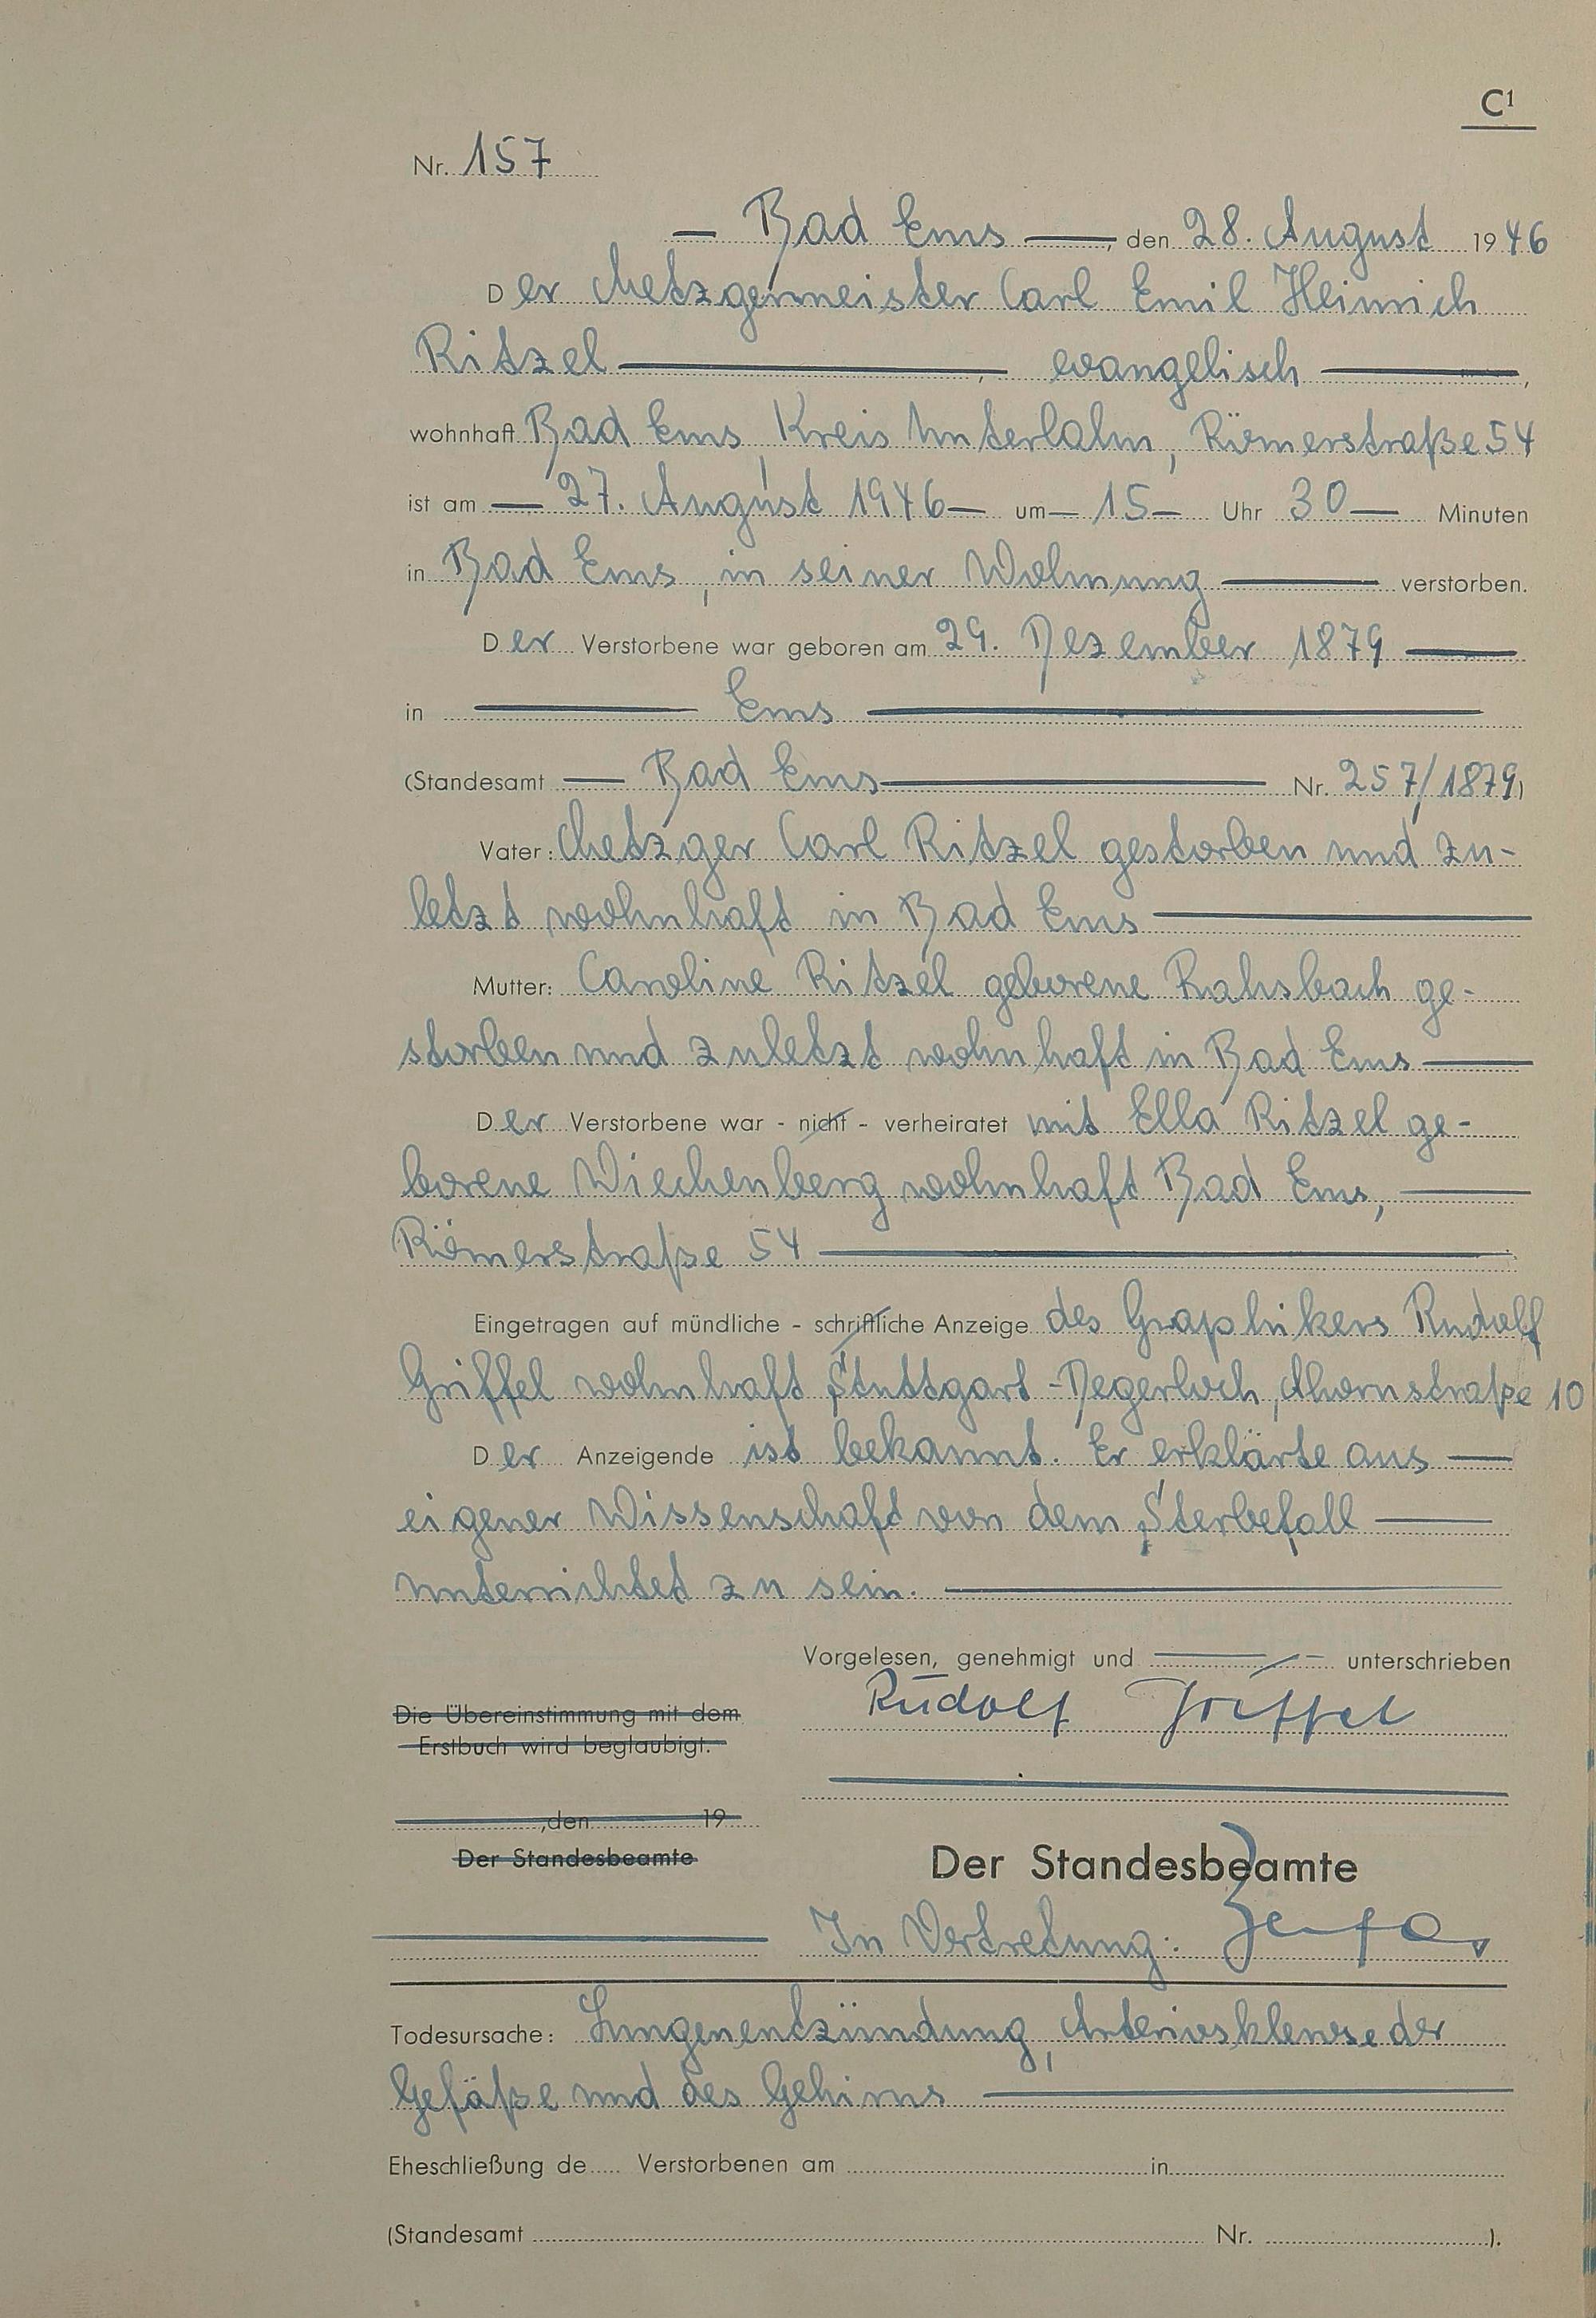 C¹
Nr. 157
— Bad Ems —, den 28. August 1946
Der Metzgermeister Carl Emil Heinrich
Ritzel —, evangelisch —,
wohnhaft Bad Ems, Kreis Unterlahn, Römerstraße 54
ist am — 27. August 1946 — um — 15 — Uhr 30 — Minuten
in Bad Ems, in seiner Wohnung — verstorben.
Der Verstorbene war geboren am 29. Dezember 1879 —
in — Ems —
(Standesamt — Bad Ems — Nr. 257/1879)
Vater: Metzger Carl Ritzel gestorben und zu-
letzt wohnhaft in Bad Ems —
Mutter: Caroline Ritzel geborene Rahsbach ge-
storben und zuletzt wohnhaft in Bad Ems —
Der Verstorbene war - nicht - verheiratet mit Ella Ritzel ge-
borene Wiechenberg wohnhaft Bad Ems, —
Römerstraße 54 —
Eingetragen auf mündliche - schriftliche Anzeige des Graphikers Rudolf
Griffel wohnhaft Stuttgart-Degerloch, Ahornstraße 10
Der Anzeigende ist bekannt. Er erklärte aus —
eigener Wissenschaft von dem Sterbefall —
unterrichtet zu sein. —
Vorgelesen, genehmigt und — unterschrieben
Rudolf Griffel
Die Übereinstimmung mit dem
Erstbuch wird beglaubigt.
, den 19
Der Standesbeamte
Der Standesbeamte
In Vertretung:
Todesursache: Lungenentzündung, Arteriosklerose der
Gefäße und des Gehirns —
Eheschließung de Verstorbenen am in
(Standesamt Nr. ).